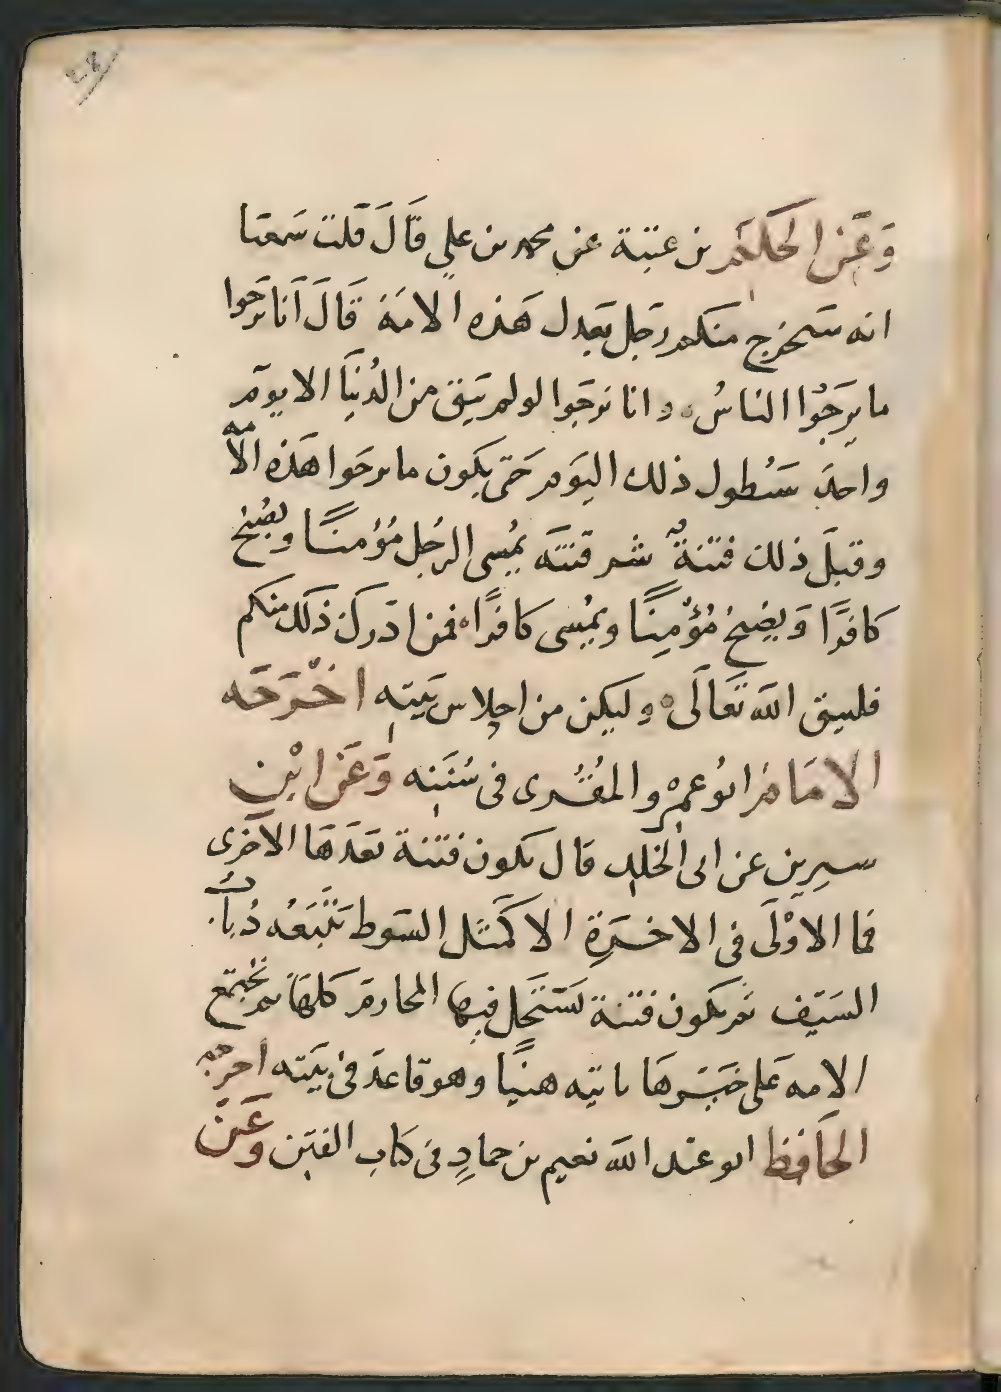 ٢٤
وَعَن الحَكَم بن عتيبة عن محمد بن علي قَالَ قلت سَمعنا
انه سَيخرج منكم رَجل يَعدل هَذه الامَة قَالَ أنا نرَجوا
ما يَرجُوا الناسُ وانا نرجَوا لو لم يَبق من الدُنيَا الا يوم
واحد سَيُطول ذلك اليَوم حَتى يكون ما نرجَوا هَذه الامه
وقبلَ ذلك فتنةٌ شر فتنَه يمُسى الرجُل مُؤمنًا ويصُبح
كافرًا وَيصُبحُ مُؤمِنًا ويمُسى كافرًا فمن ادرك ذَلك منكم
فليتق الله تَعَالَى وليكن من احلاس بَيته اخْرَجَه
الامَام ابو عمرو المقُرى فى سُنَنه وَعَن ابْن
سيرين عن ابى الخلد قال تكون فتنة بَعدَهَا الاخرى
فما الاوْلَى فى الاخرَة الا كمَثل السَوط تتْبَعُه ذُبَابُ
السَيف ثم تكون فتنة تستَحَل فيها المحارم كلهَا ثم تجْتمَع
الامه عَلى خَيرهَا ياتيه هنيًا وهو قاعد فى بَيته اخرجه
الحَافظ ابو عبد الله نعيم بن حمادٍ فى كتاب الفتن وعَن